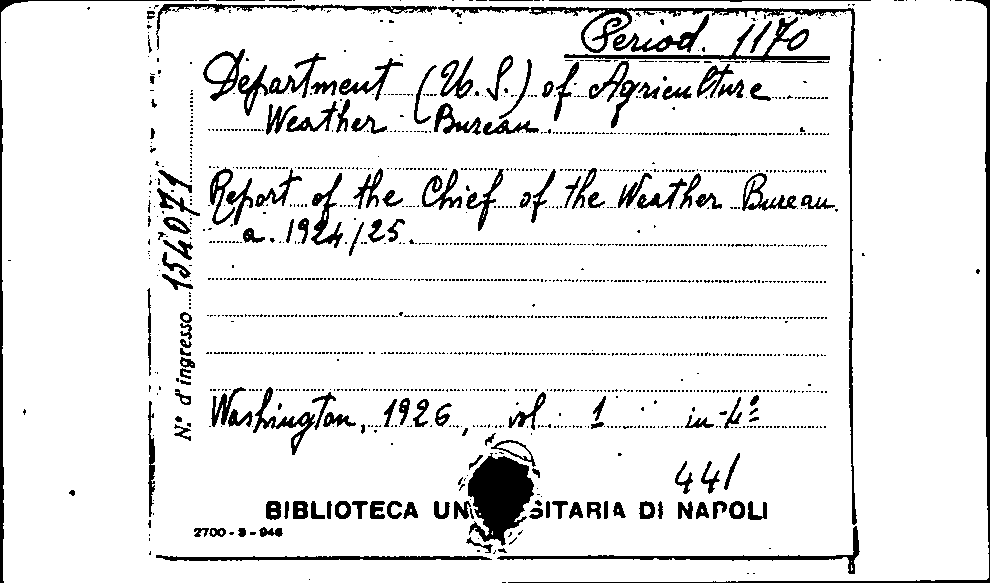 Period. 1170
Department (U.S.) of Agriculture
Weather Bureau.
Report of the Chief of the Weather Bureau.
a. 1924/25.
N.° d'ingresso 154071
Washington, 1926, vol. 1 in-4°
441
BIBLIOTECA UN SITARIA DI NAPOLI
2700-9-946